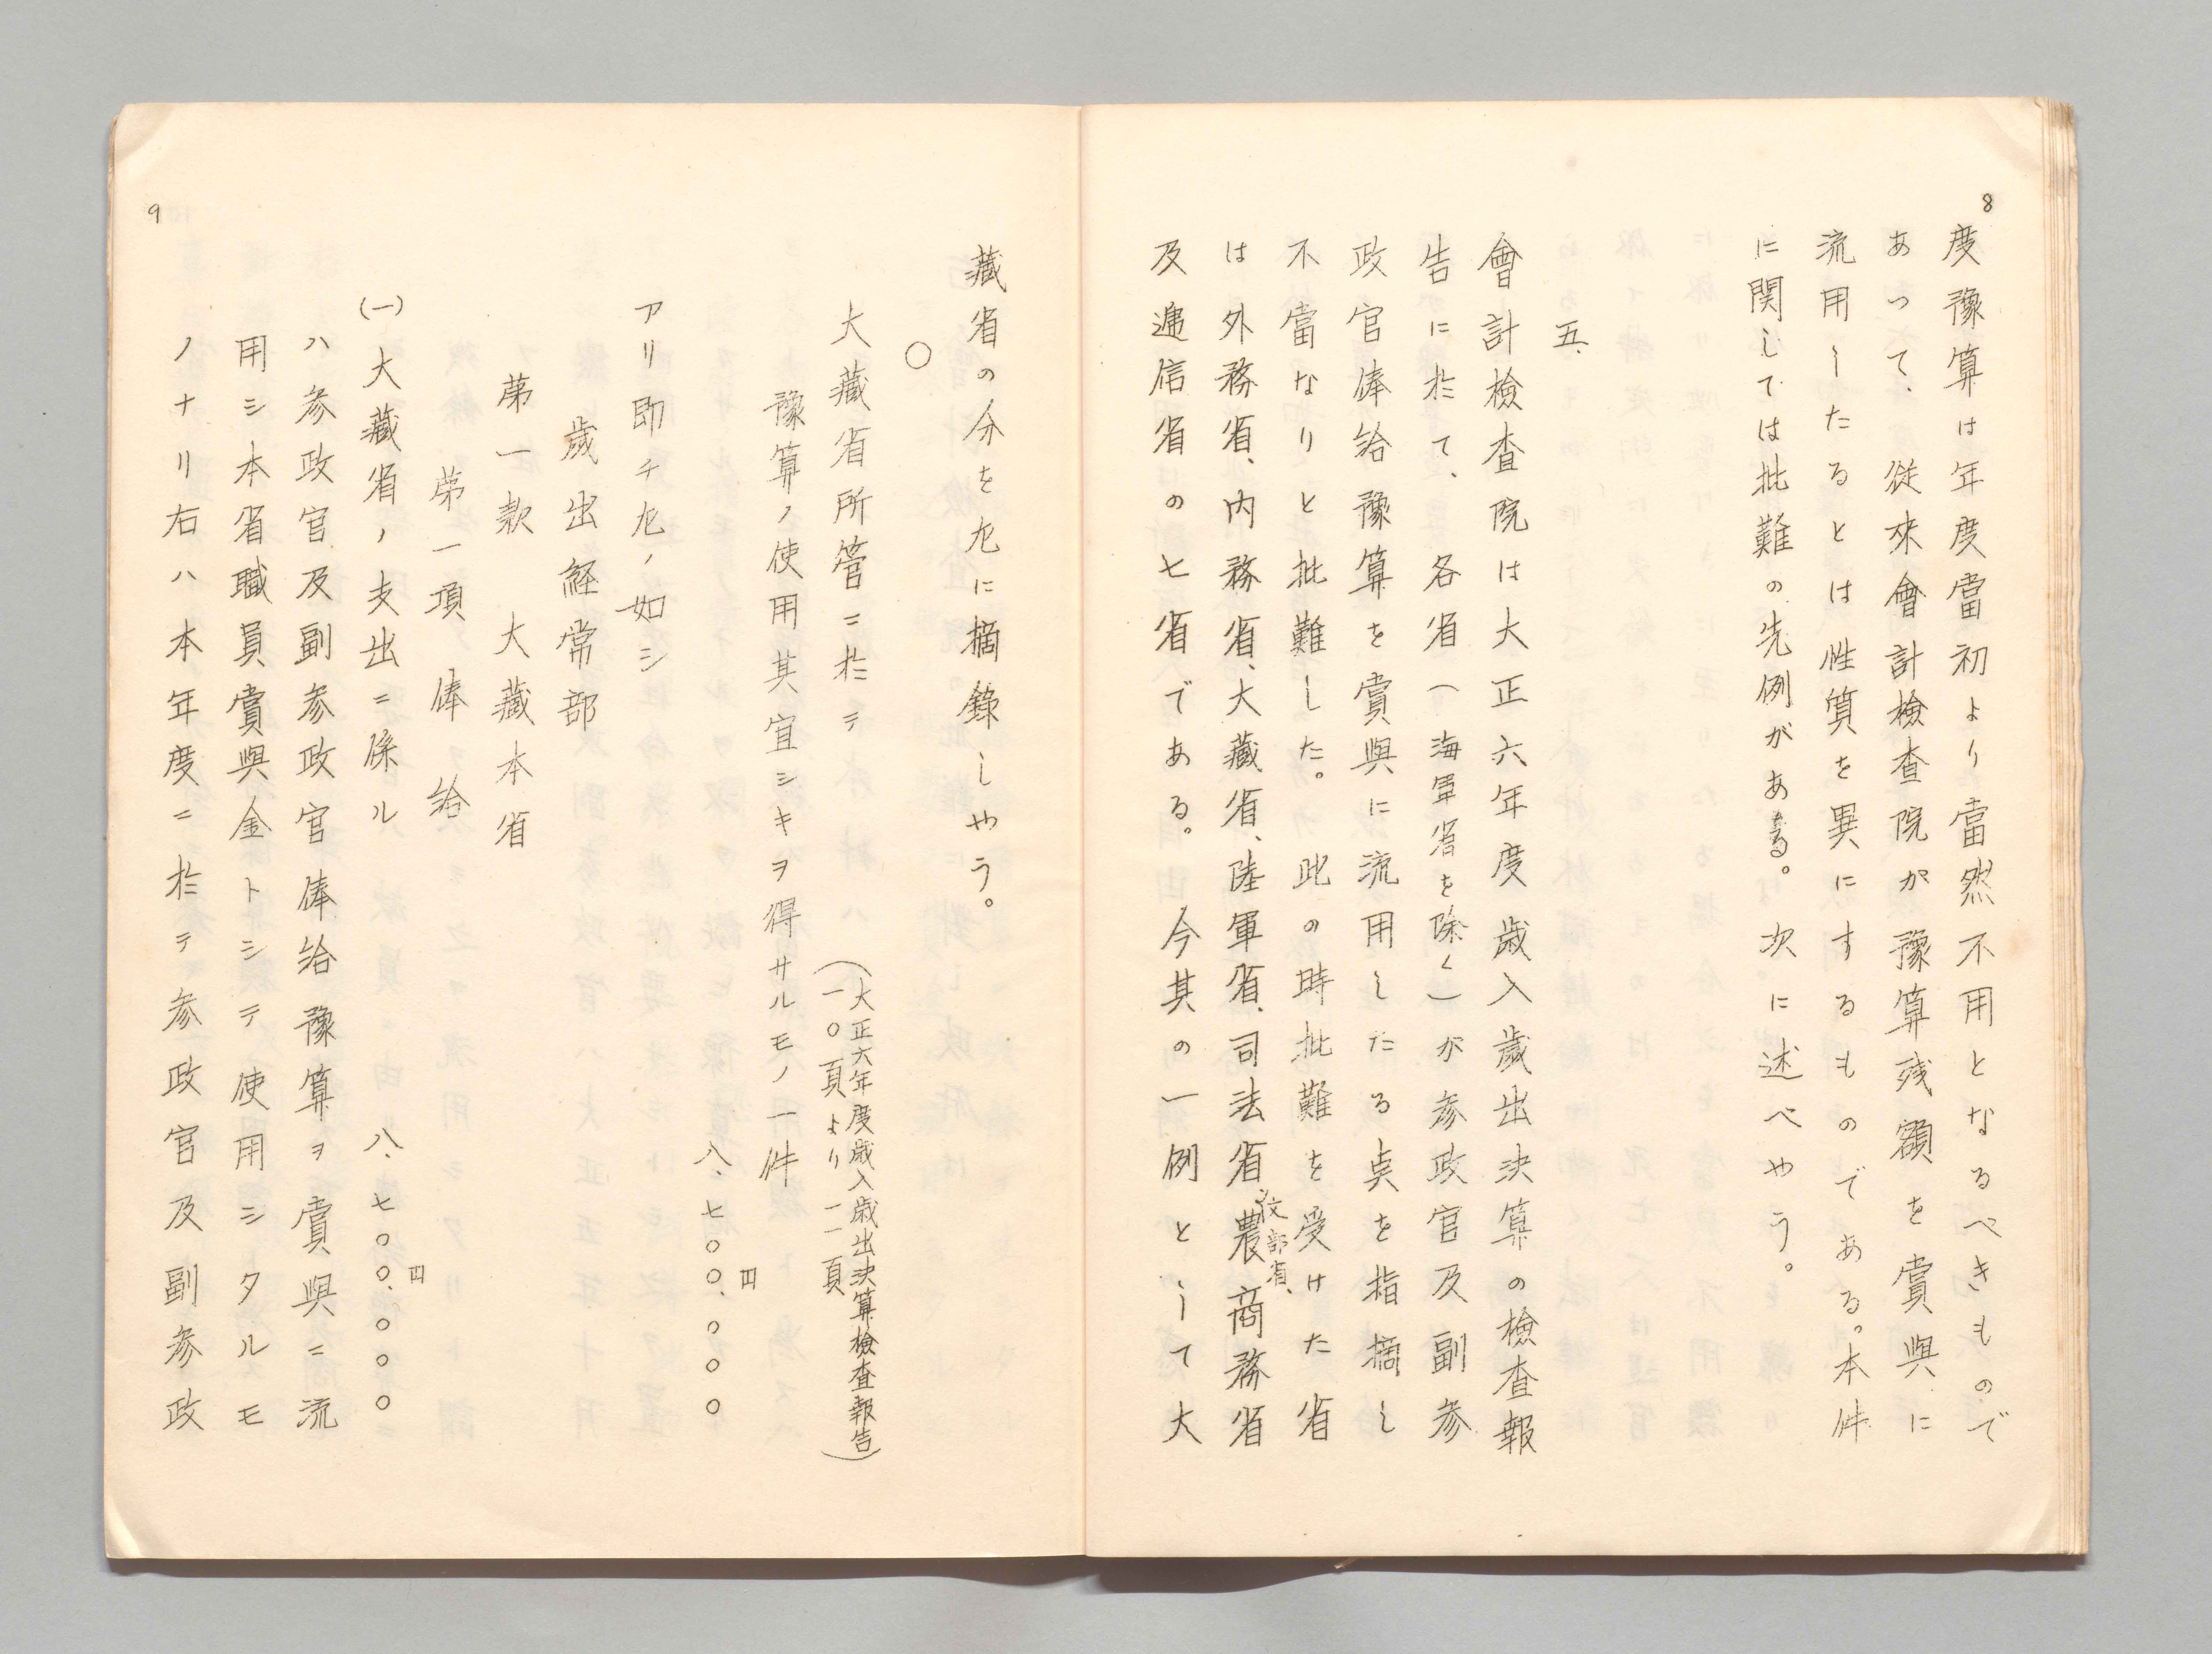 8
度豫算は年度當初より當然不用となるべきもので
あって、従来會計檢査院が豫算残額を賞與に
流用したるとは性質を異にするものである。本件
に関しては批難の先例がある。次に述べやう。
五、
會計檢査院は大正六年度歳入歳出決算の檢査報
告に於て、各省（海軍省を除く）が参政官及副参
政官俸給豫算を賞與に流用したる点を指摘し
不當なりと批難した。此の時批難を受けた省
は外務省、内務省、大藏省、陸軍省、司法省、文部省、農商務省
及逓信省の七省である。今其の一例として大
9
藏省の分を左に摘錄しやう。
○
（大正六年度歳入歳出決算檢査報告
一一〇頁より一一一頁）
大藏省所管ニ於テ
豫算ノ使用其宜シキヲ得サルモノ一件
八、七〇〇、〇〇〇円
アリ即チ左ノ如シ
歳出経常部
第一款　大藏本省
第一項　俸給
(一)大藏省ノ支出ニ係ル　八、七〇〇、〇〇〇円
ハ参政官及副参政官俸給豫算ヲ賞與ニ流
用シ本省職員賞與金トシテ使用シタルモ
ノナリ右ハ本年度ニ於テ参政官及副参政